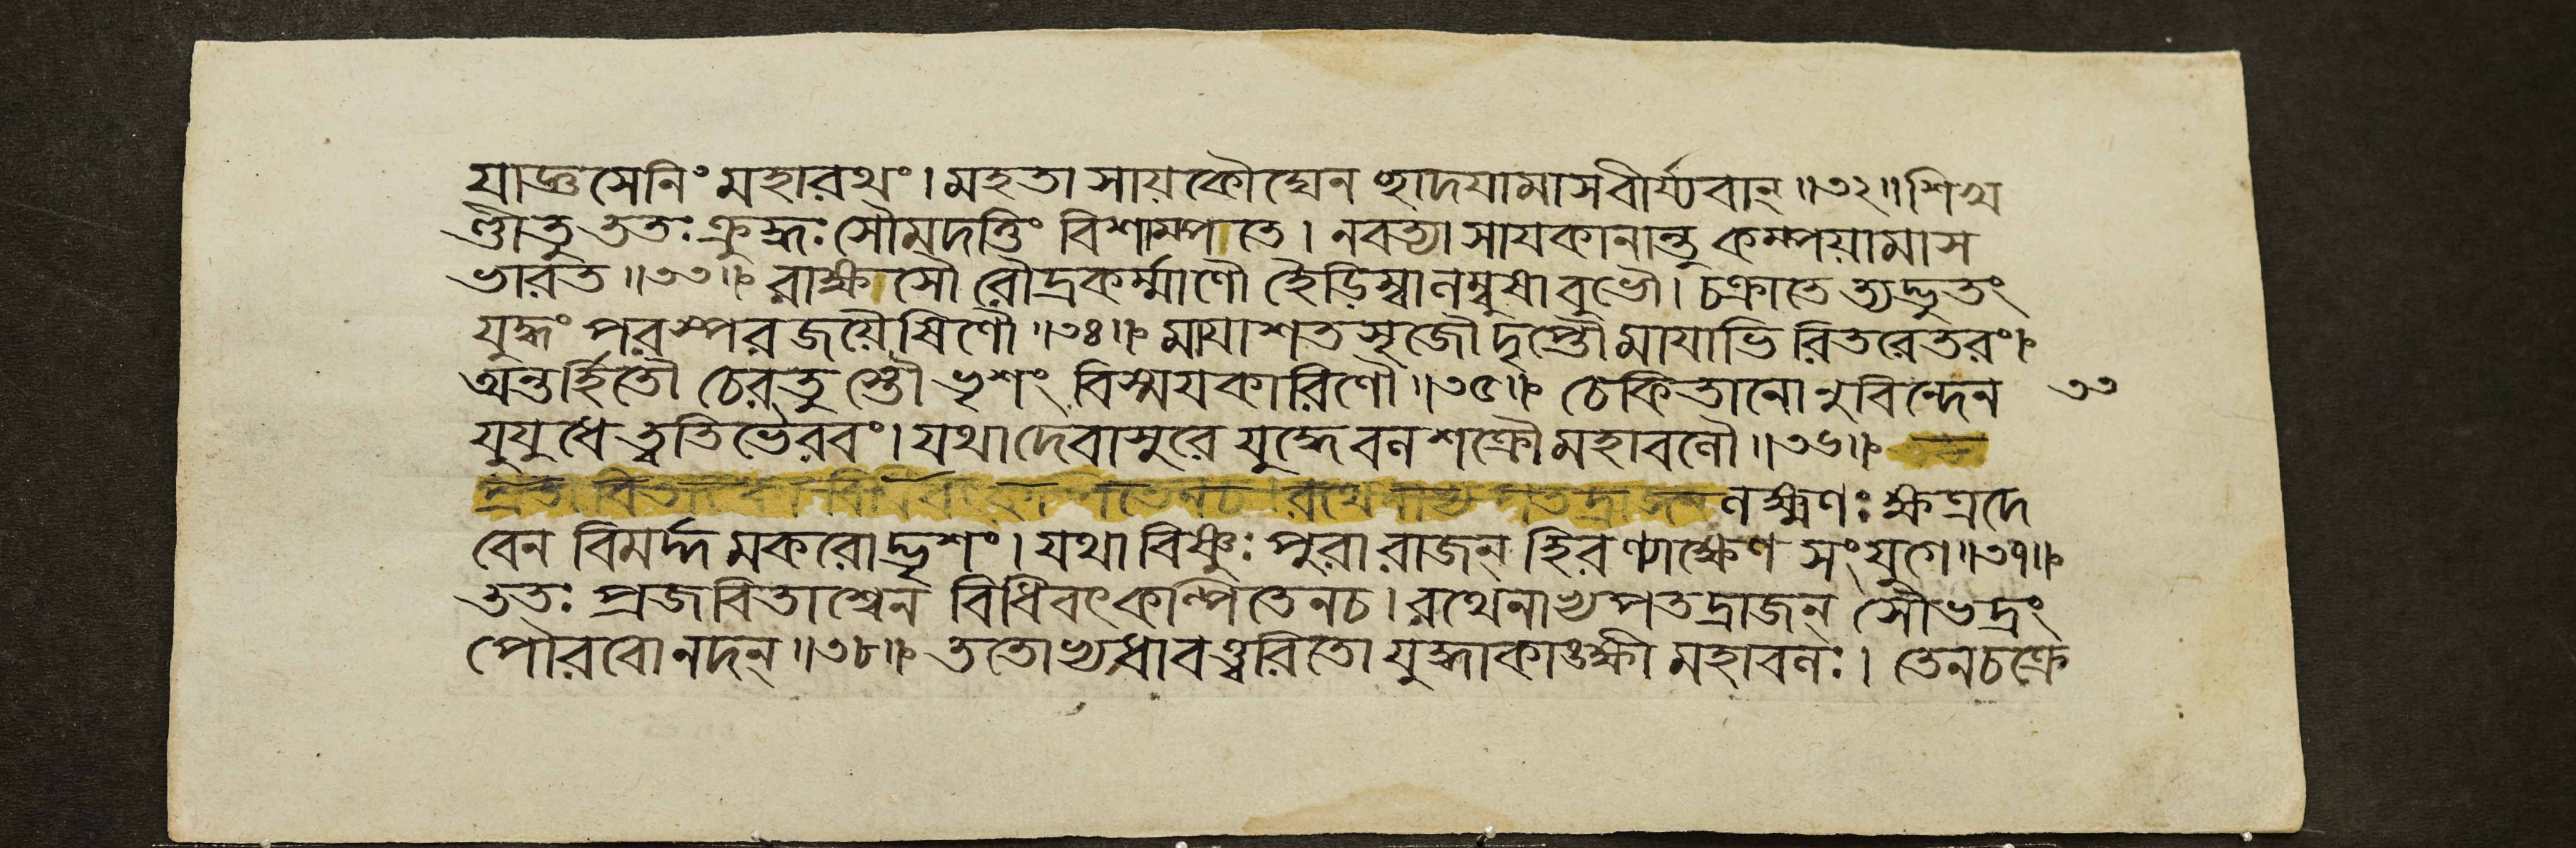 যাজ্ঞসেনিং মহারথং। মহতা সায়কৌঘেন ছাদয়ামাস বীর্য্যবান্॥৩২॥ শিখ
ণ্ডী তু ততঃ ক্রুদ্ধঃ সৌমদত্তিং বিশাম্পতে। নবত্যা সায়কানান্তু কম্পয়ামাস
ভারত॥৩৩॥ রাক্ষসৌ রৌদ্রকর্ম্মাণৌ হৈড়িম্বালম্বুষাবুভৌ। চক্রাতে ত্যদ্ভুতং
যুদ্ধং পরস্পরজয়ৈষিণৌ॥৩৪॥ মায়াশতসৃজৌ দৃপ্তৌ মায়াভিরিতরেতরং।
অন্তর্হিতৌ চেরতুস্তৌ ভৃশং বিস্ময়কারিণৌ॥৩৫॥ চেকিতানোনুবিন্দেন
৩৩
যুযুধে ত্বতিভৈরবং। যথা দেবাসুরে যুদ্ধে বলশক্রৌ মহাবলৌ॥৩৬॥
লক্ষ্মণঃ ক্ষত্রদে
বেন বিমর্দ্দমকরোদ্ভৃশং। যথা বিষ্ণুঃ পুরা রাজন্ হিরণ্যাক্ষেণ সংযুগে॥৩৭॥
ততঃ প্রজবিতাশ্বেন বিধিবৎকল্পিতেন চ। রথেনাভ্যপতদ্রাজন্ সৌভদ্রং
পৌরবো নদন্॥৩৮॥ ততোভ্যধাবত্ত্বরিতো যুদ্ধাকাঙ্ক্ষী মহাবলঃ। তেন চক্রে